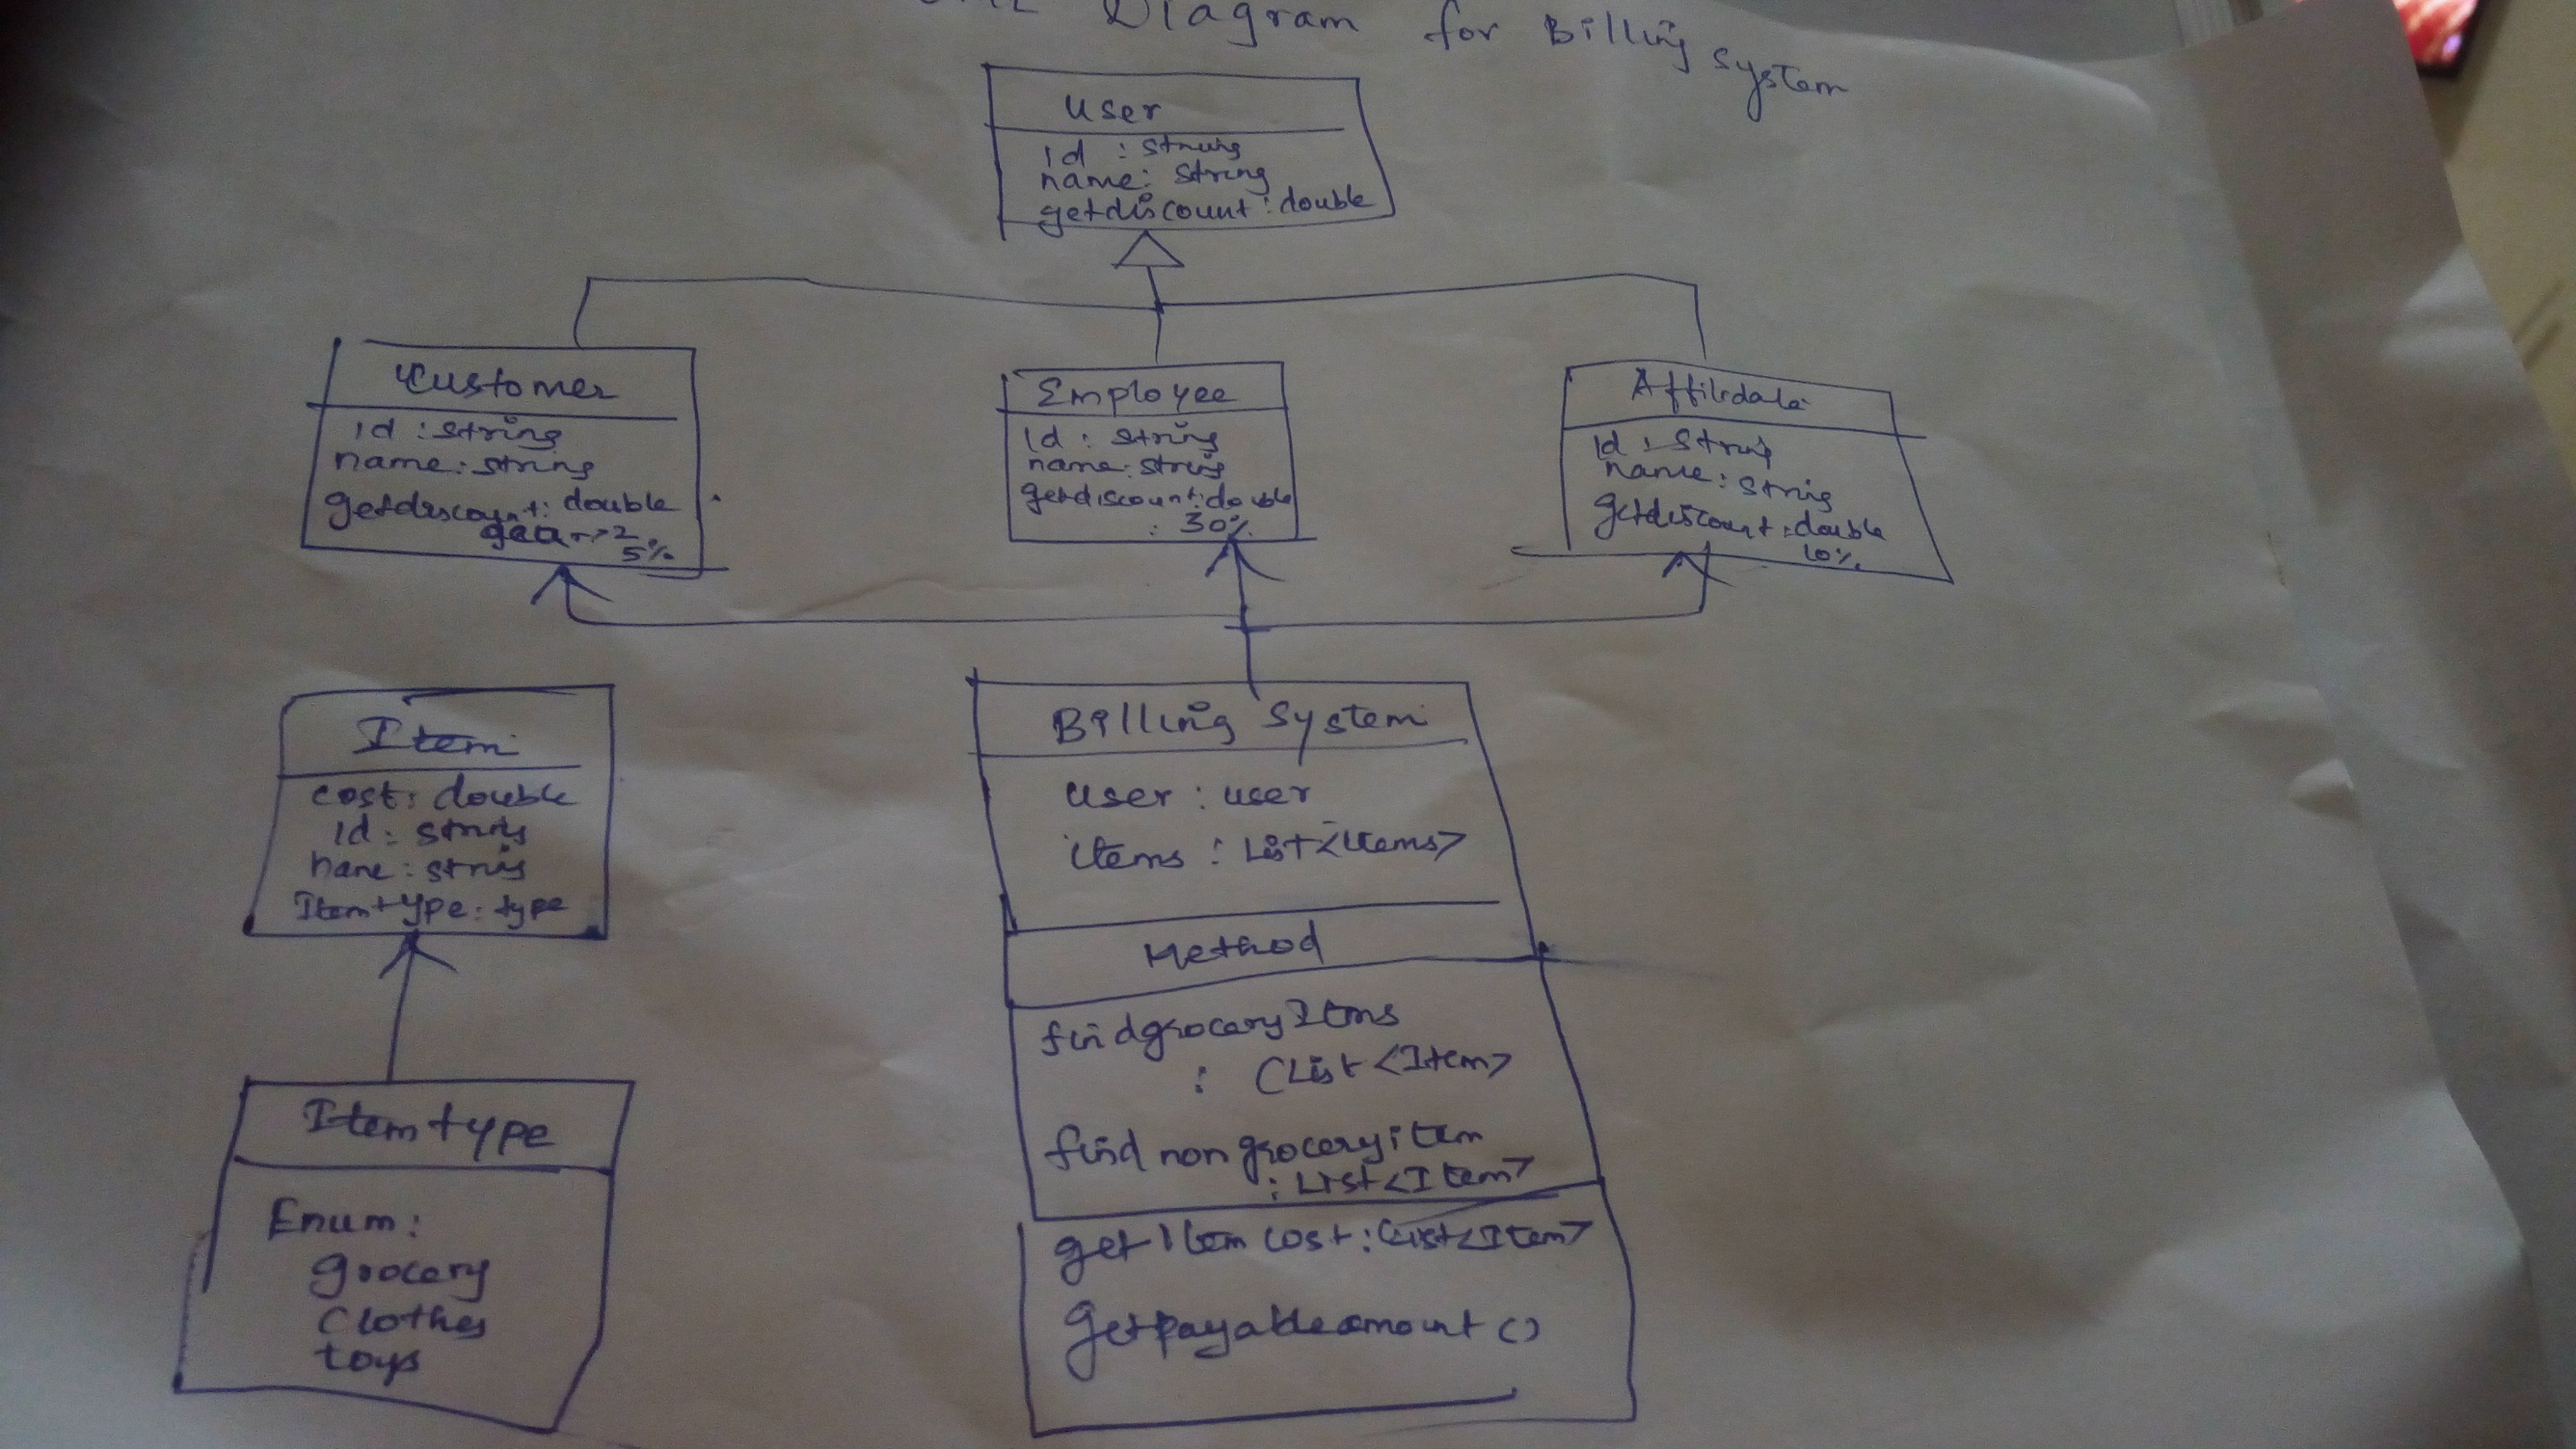 Diagram for Billing System
User
id : string
name: string
getdiscount : double
Customer
id : string
name: string
getdiscount: double
2
5%
Employee
id : string
name: string
getdiscount: double
: 30%
id : string
name : string
getdiscount : double
10%
Item
cost: double
id : string
name : string
Itemtype: type
Billing System
user : user
items : List<items>
Method
findgroceryItems
: (List <Item>
find nongroceryitem
: List<Item>
getItem cost : List<Item>
getpayableamount ()
Itemtype
Enum:
grocery
Clothes
toys